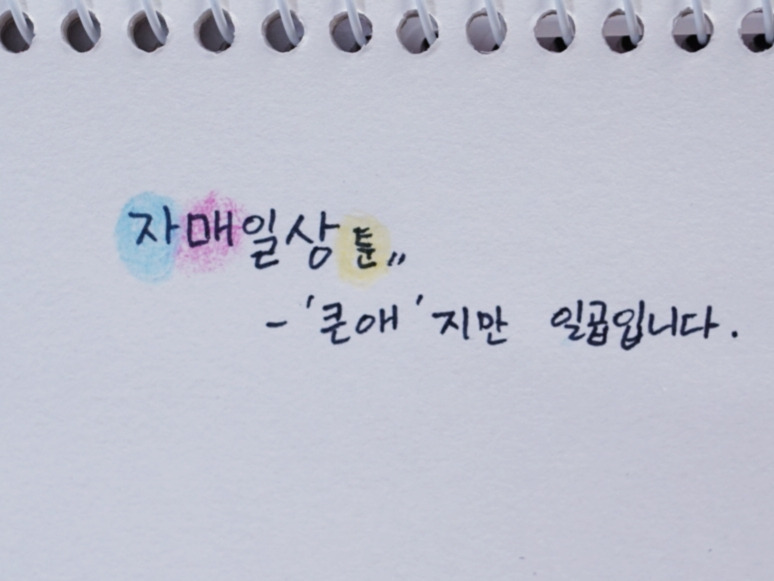 자매일상툰,,
- '큰애'지만 일곱입니다.